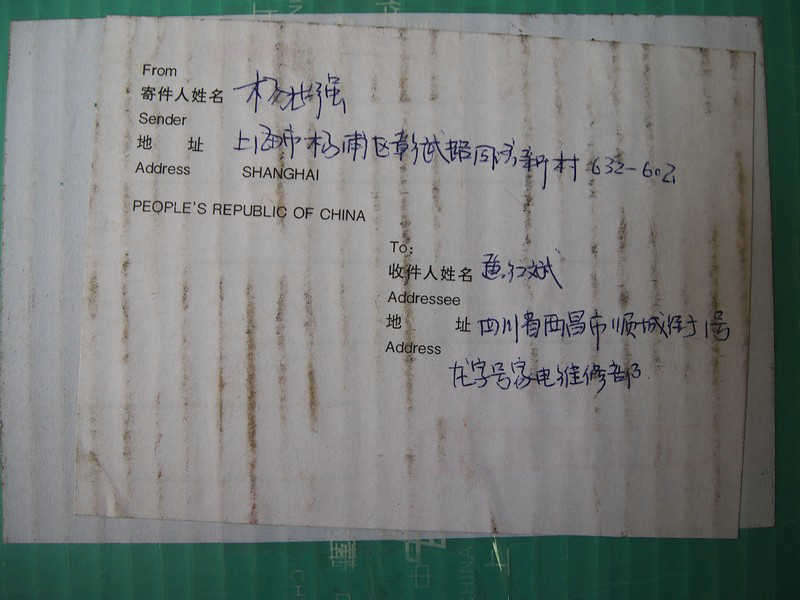 From
寄件人姓名 杨世强
Sender
地 址 上海市杨浦区彰武路同济新村 632-602
Address SHANGHAI
PEOPLE'S REPUBLIC OF CHINA
To:
收件人姓名 仁斌
Addressee
地 址 四川省西昌市顺城街1号
Address
龙字号家电维修部